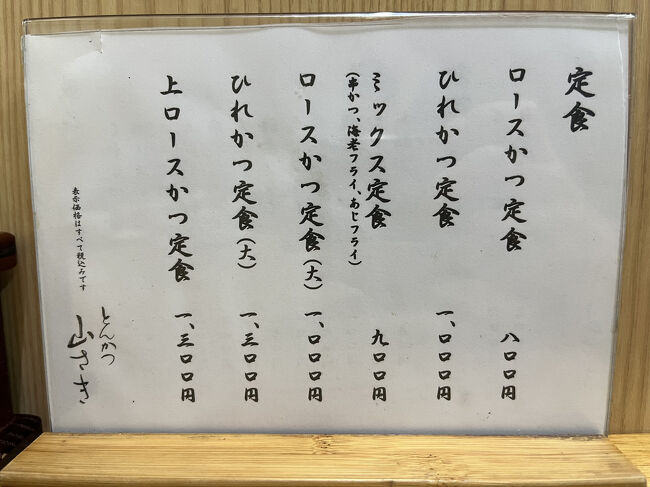 定食
ロースかつ定食 八〇〇円
ひれかつ定食 一、〇〇〇円
ミックス定食 九〇〇円
(串かつ、海老フライ、あじフライ)
ロースかつ定食(大) 一、〇〇〇円
ひれかつ定食(大) 一、三〇〇円
上ロースかつ定食 一、三〇〇円
表示価格はすべて税込みです
とんかつ
山さき